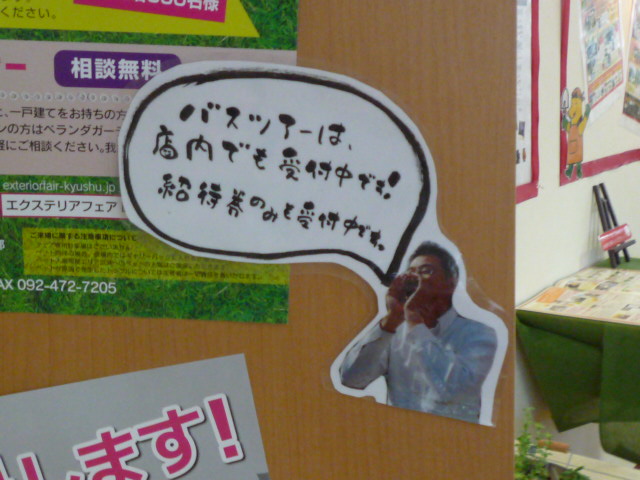 ください。
相談無料
一戸建てをお持ちの方
ンの方はベランダガー
軽にご相談ください。我
exteriorfair-kyushu.jp
エクステリアフェア
FAX 092-472-7205
バスツアーは、
店内でも受付中です!
紹待券のみも受付中です。
します!